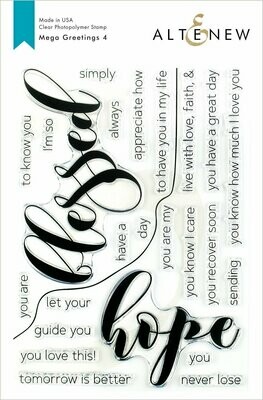 Made in USA
Clear Photopolymer Stamp
Mega Greetings 4
ALTENEW
simply
to know you
I'm so
blessed
always
appreciate how
to have you in my life
live with love, faith, &
you have a great day
you know how much I love you
you are
have a
day
you are my
you know I care
you recover soon
sending
let your
hope
guide you
you love this!
tomorrow is better
you
never lose